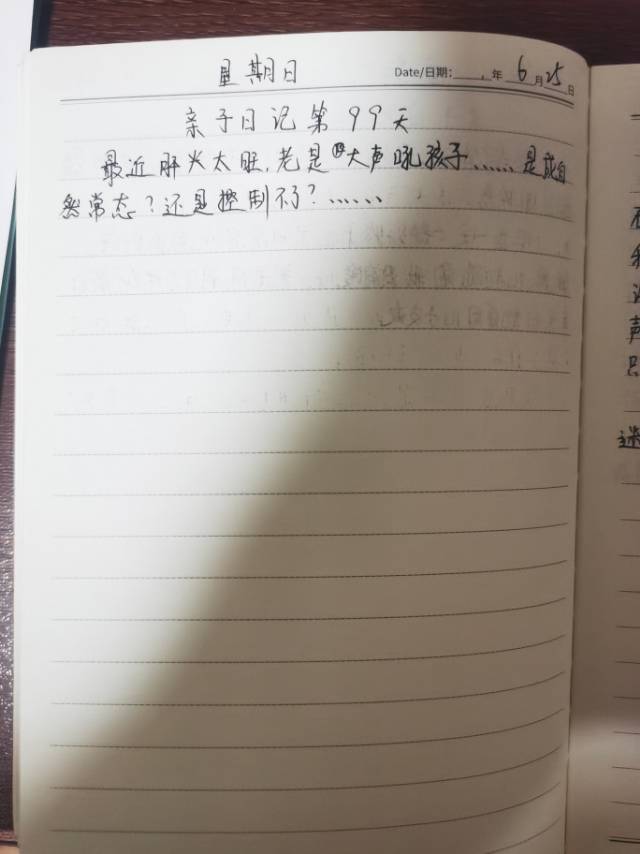 星期日 Date/日期: 年 6月25日
亲子日记第99天
最近肝火太旺,老是大声吼孩子……是成自
然常态?还是控制不了?……
声
只
迷